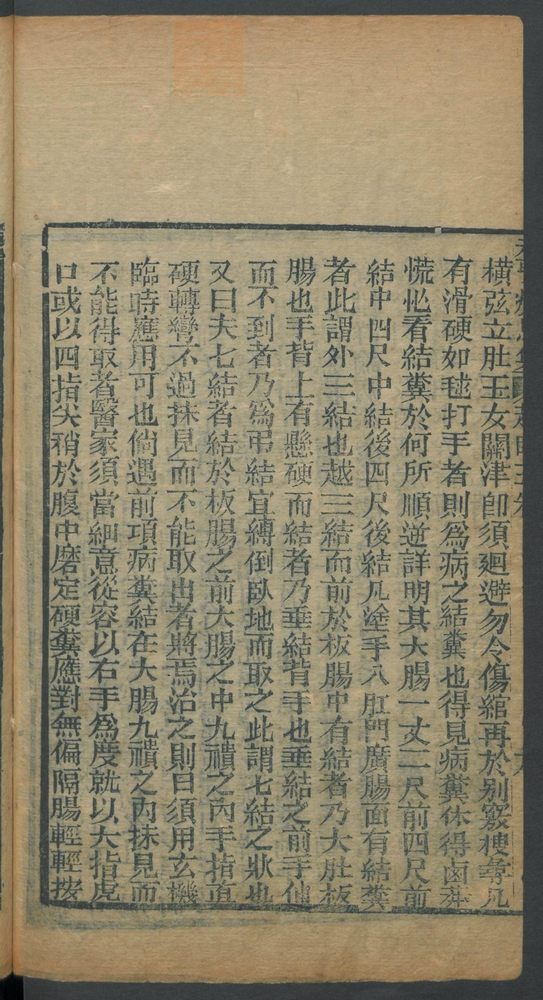 橫弦立肚玉女關津卽須迴避勿令傷綰再於别竅摟尋凡
有滑硬如毬打手者則爲病之結糞也得見病糞休得鹵莽
慌忙看結糞於何所順逆詳明其大腸一丈二尺前四尺前
結中四尺中結後四尺後結凡塗手入肛門廣腸面有結糞
者此謂外三結也越三結而前於板腸中有結者乃大肚板
腸也手背上有懸硬而結者乃垂結背手也垂結之前手伸
而不到者乃爲弔結宜縛倒臥地而取之此謂七結之狀也
又曰夫七結者結於板腸之前大腸之中九𧸐之內手指直
硬轉彎不過抹見而不能取出者將焉治之則曰須用玄機
臨時應用可也倘遇前項病糞結在大腸九𧸐之內抹見而
不能得取者醫家須當細意從容以右手爲度就以大指虎
口或以四指尖稍於腹中磨定硬糞應對無偏隔腸輕輕按